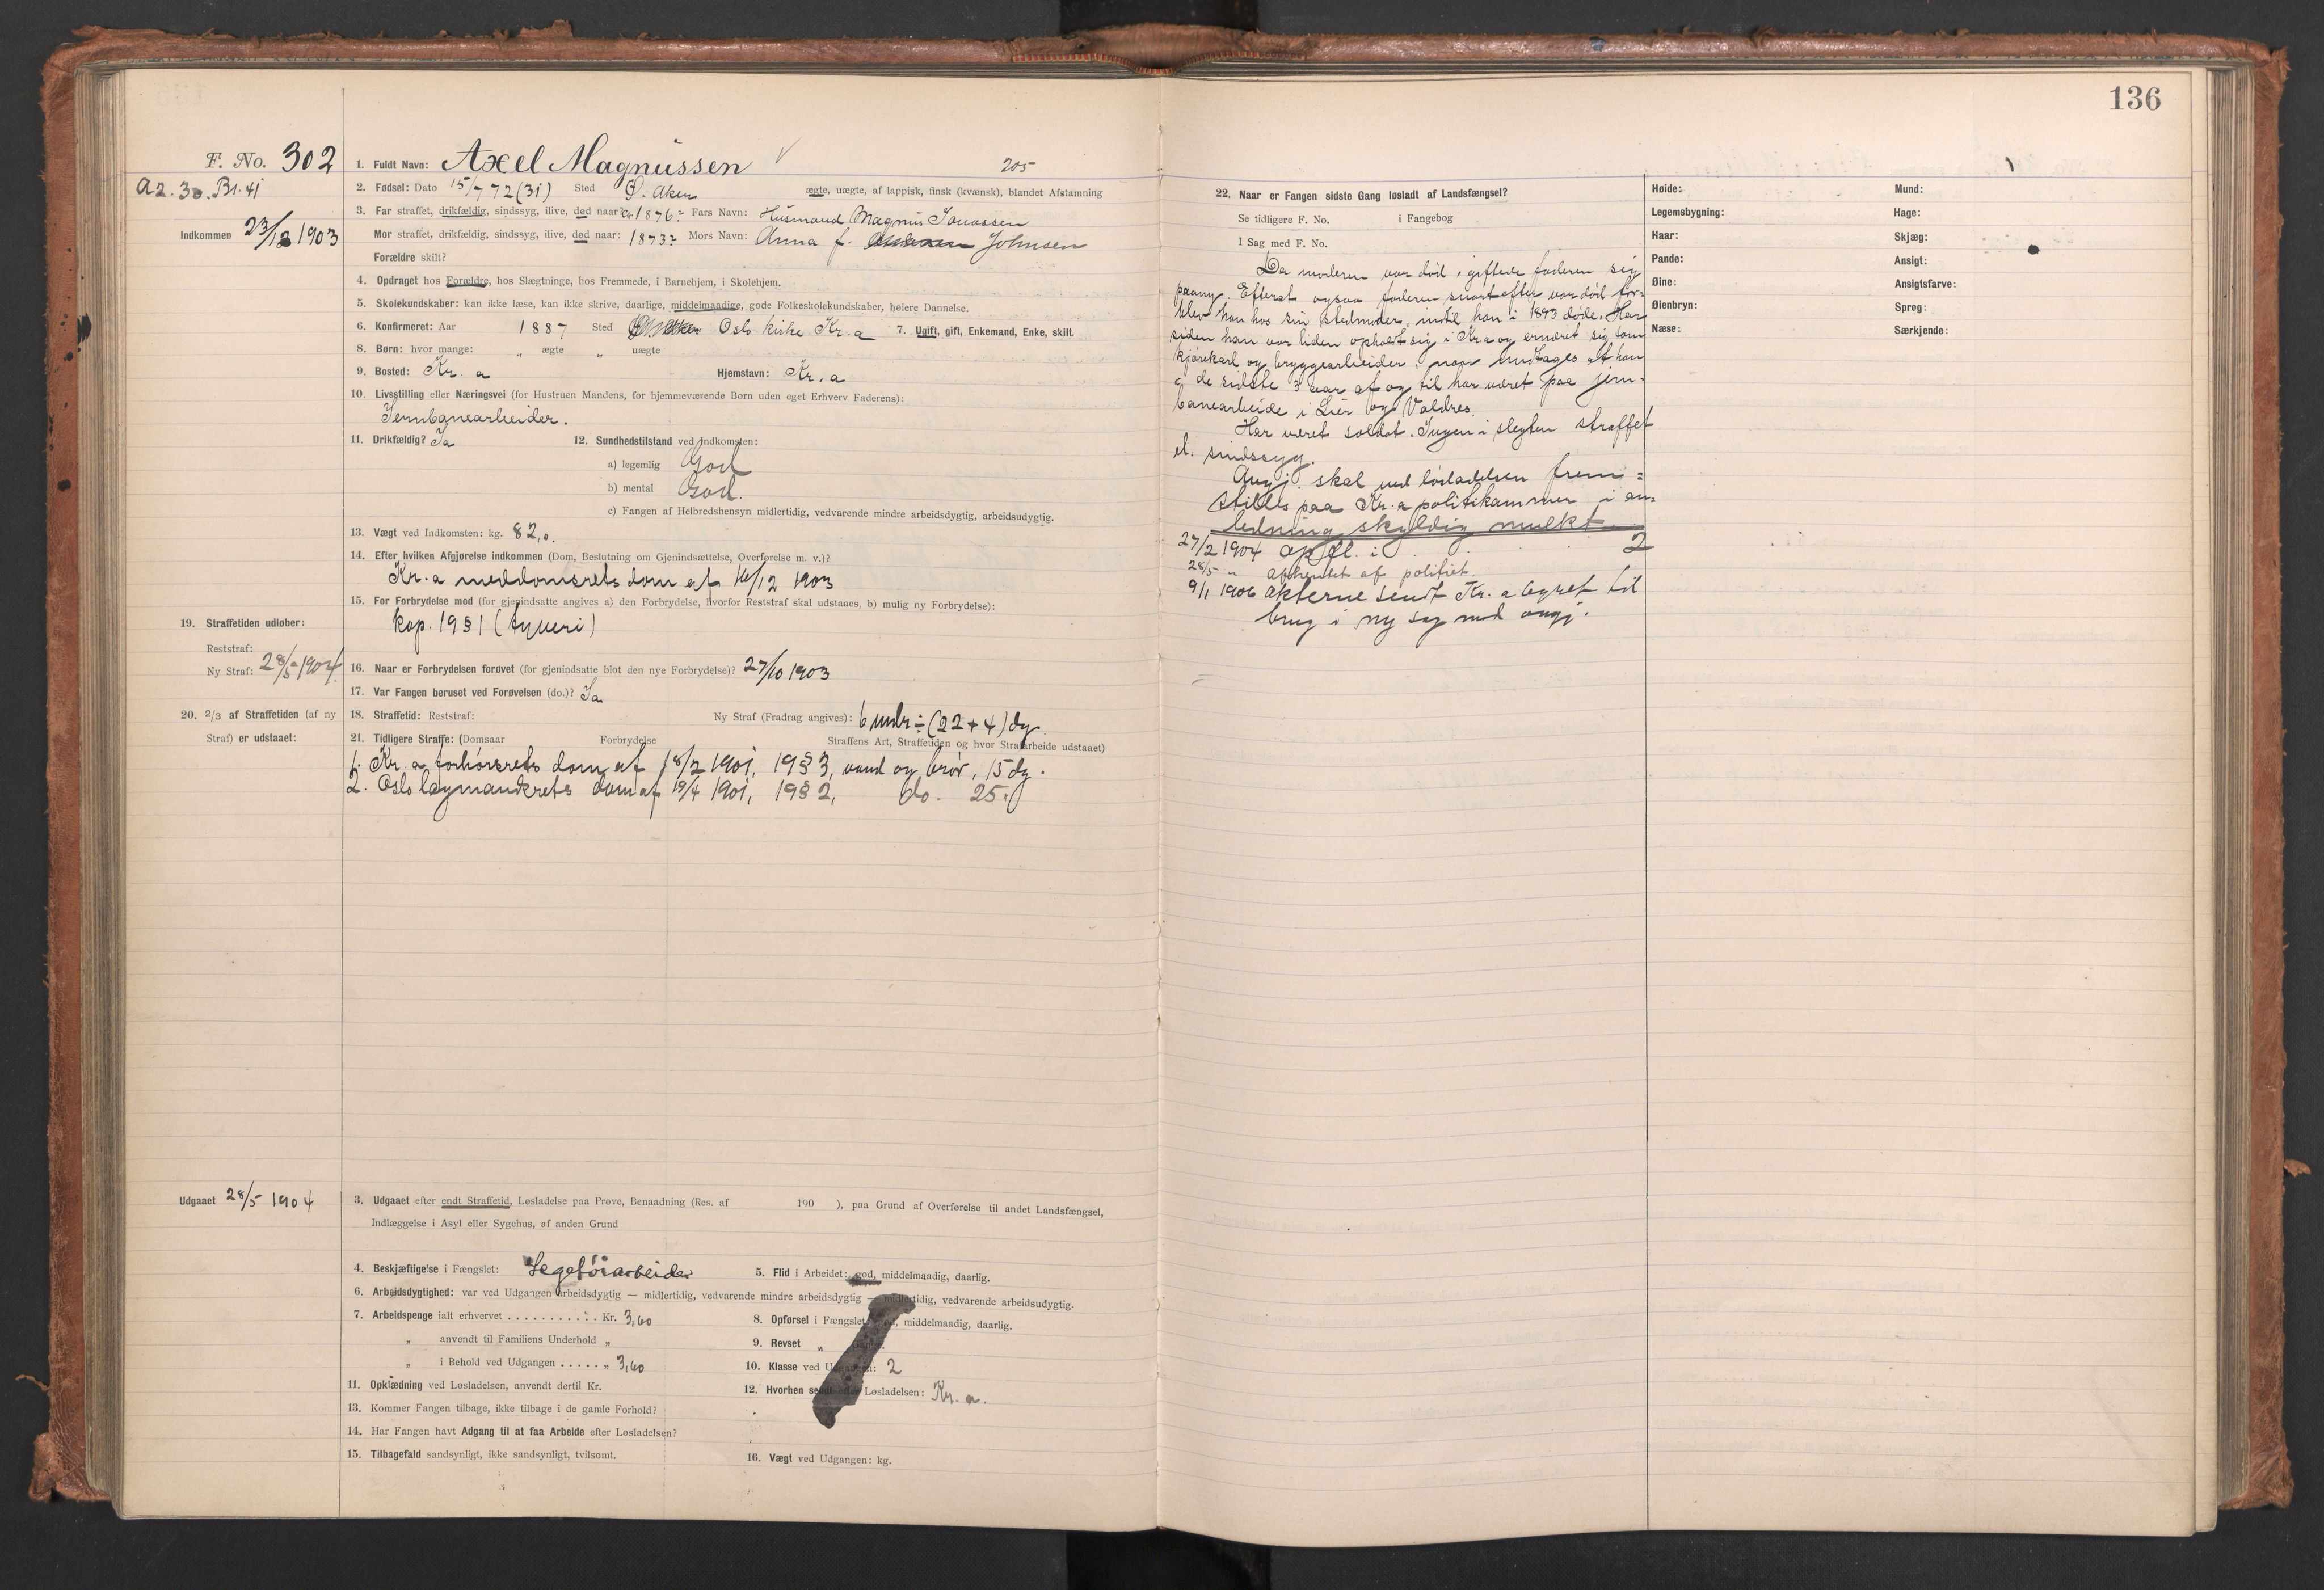 136
F. No. 302
A2. 30. Br. 41
Indkommen 23/12 1903
1. Fuldt Navn: Axel Magnussen 205
2. Fødsel: Dato 15/7 72 (31) Sted Ø. Aker ægte, uægte, af lappisk, finsk (kvænsk), blandet Afstamning
3. Far straffet, drikfældig, sindssyg, ilive, død naar? ca. 1876? Fars Navn: Husmand Magnus Jonassen
Mor straffet, drikfældig, sindssyg, ilive, død naar: 1873? Mors Navn: Anna f. Johnsen
Forældre skilt?
4. Opdraget hos Forældre, hos Slægtninge, hos Fremmede, i Barnehjem, i Skolehjem.
5. Skolekundskaber: kan ikke læse, kan ikke skrive, daarlige, middelmaadige, gode Folkeskolekundskaber, høiere Dannelse.
6. Konfirmeret: Aar 1887 Sted Oslo kirke Kr.a 7. Ugift, gift, Enkemand, Enke, skilt.
8. Børn: hvor mange: „ ægte „ uægte
9. Bosted: Kr. a Hjemstavn: Kr. a
10. Livsstilling eller Næringsvei (for Hustruen Mandens, for hjemmeværende Børn uden eget Erhverv Faderens):
Jernbanearbeider.
11. Drikfældig? Ja 12. Sundhedstilstand ved Indkomsten:
a) legemlig God
b) mental God.
c) Fangen af Helbredshensyn midlertidig, vedvarende mindre arbeidsdygtig, arbeidsudygtig.
13. Vægt ved Indkomsten: kg. 82,0.
14. Efter hvilken Afgjørelse indkommen (Dom, Beslutning om Gjenindsættelse, Overførelse m. v.)?
Kr. a meddomsrets dom af 16/12 1903
15. For Forbrydelse mod (for gjenindsatte angives a) den Forbrydelse, hvorfor Reststraf skal udstaaes, b) mulig ny Forbrydelse):
kap. 19 § 1 (tyveri)
19. Straffetiden udløber:
Reststraf:
Ny Straf: 28/5 1904
16. Naar er Forbrydelsen forøvet (for gjenindsatte blot den nye Forbrydelse)? 27/10 1903
17. Var Fangen beruset ved Forøvelsen (do.)? Ja
20. 2/3 af Straffetiden (af ny
Straf) er udstaaet:
18. Straffetid: Reststraf: Ny Straf (Fradrag angives): 6 mdr ÷ (22 + 4) dg.
21. Tidligere Straffe: (Domsaar Forbrydelse Straffens Art, Straffetiden og hvor Strafarbeide udstaaet)
1. Kr. a forhørsrets dom af 18/2 1901, 19 § 3, vand og brød, 15 dg.
2. Oslo lagmandsrets dom af 19/4 1901, 19 § 2, do. 25 „
Udgaaet 28/5 1904
3. Udgaaet efter endt Straffetid, Løsladelse paa Prøve, Benaadning (Res. af 190 ), paa Grund af Overførelse til andet Landsfængsel,
Indlæggelse i Asyl eller Sygehus, af anden Grund
4. Beskjæftigelse i Fængslet: Legetøiarbeider 5. Flid i Arbeidet: god, middelmaadig, daarlig.
6. Arbeidsdygtighed: var ved Udgangen arbeidsdygtig — midlertidig, vedvarende mindre arbeidsdygtig — midlertidig, vedvarende arbeidsudygtig.
7. Arbeidspenge ialt erhvervet . . . . . . . . . . . Kr. 3,60 8. Opførsel i Fængslet: god, middelmaadig, daarlig.
„ anvendt til Familiens Underhold „ 9. Revset „
„ i Behold ved Udgangen . . . . . „ 3,60 10. Klasse ved Udgangen: 2
11. Opklædning ved Løsladelsen, anvendt dertil Kr. 12. Hvorhen sendt efter Løsladelsen: Kr. a.
13. Kommer Fangen tilbage, ikke tilbage i de gamle Forhold?
14. Har Fangen havt Adgang til at faa Arbeide efter Løsladelsen?
15. Tilbagefald sandsynligt, ikke sandsynligt, tvilsomt. 16. Vægt ved Udgangen: kg.
22. Naar er Fangen sidste Gang løsladt af Landsfængsel?
Se tidligere F. No. i Fangebog
I Sag med F. No.
Da moderen var død, giftede faderen sig
paany. Efterat ogsaa faderen snart efter var død for-
blev han hos sin stedmoder, indtil hun i 1893 døde. Har
siden han var liden opholdt sig i Kr.a og ernæret sig som
kjørekarl og bryggearbeider, naar undtages at han
i de sidste 3 aar af og til har været paa jern-
banearbeide i Lier og Valdres.
Har været soldat. Ingen i slegten straffet
el. sindssyg.
Angj. skal ved løsladelsen frem=
stilles paa Kr. a politikammer i an=
ledning skyldig mulkt.
27/2 1904 opfl. i 2
28/5 „ afhentet af politiet.
9/1 1906 akterne sendt Kr. a byret til
brug i ny sag mod angj.
Høide:
Legemsbygning:
Haar:
Pande:
Øine:
Øienbryn:
Næse:
Mund:
Hage:
Skjæg:
Ansigt:
Ansigtsfarve:
Sprog:
Særkjende: